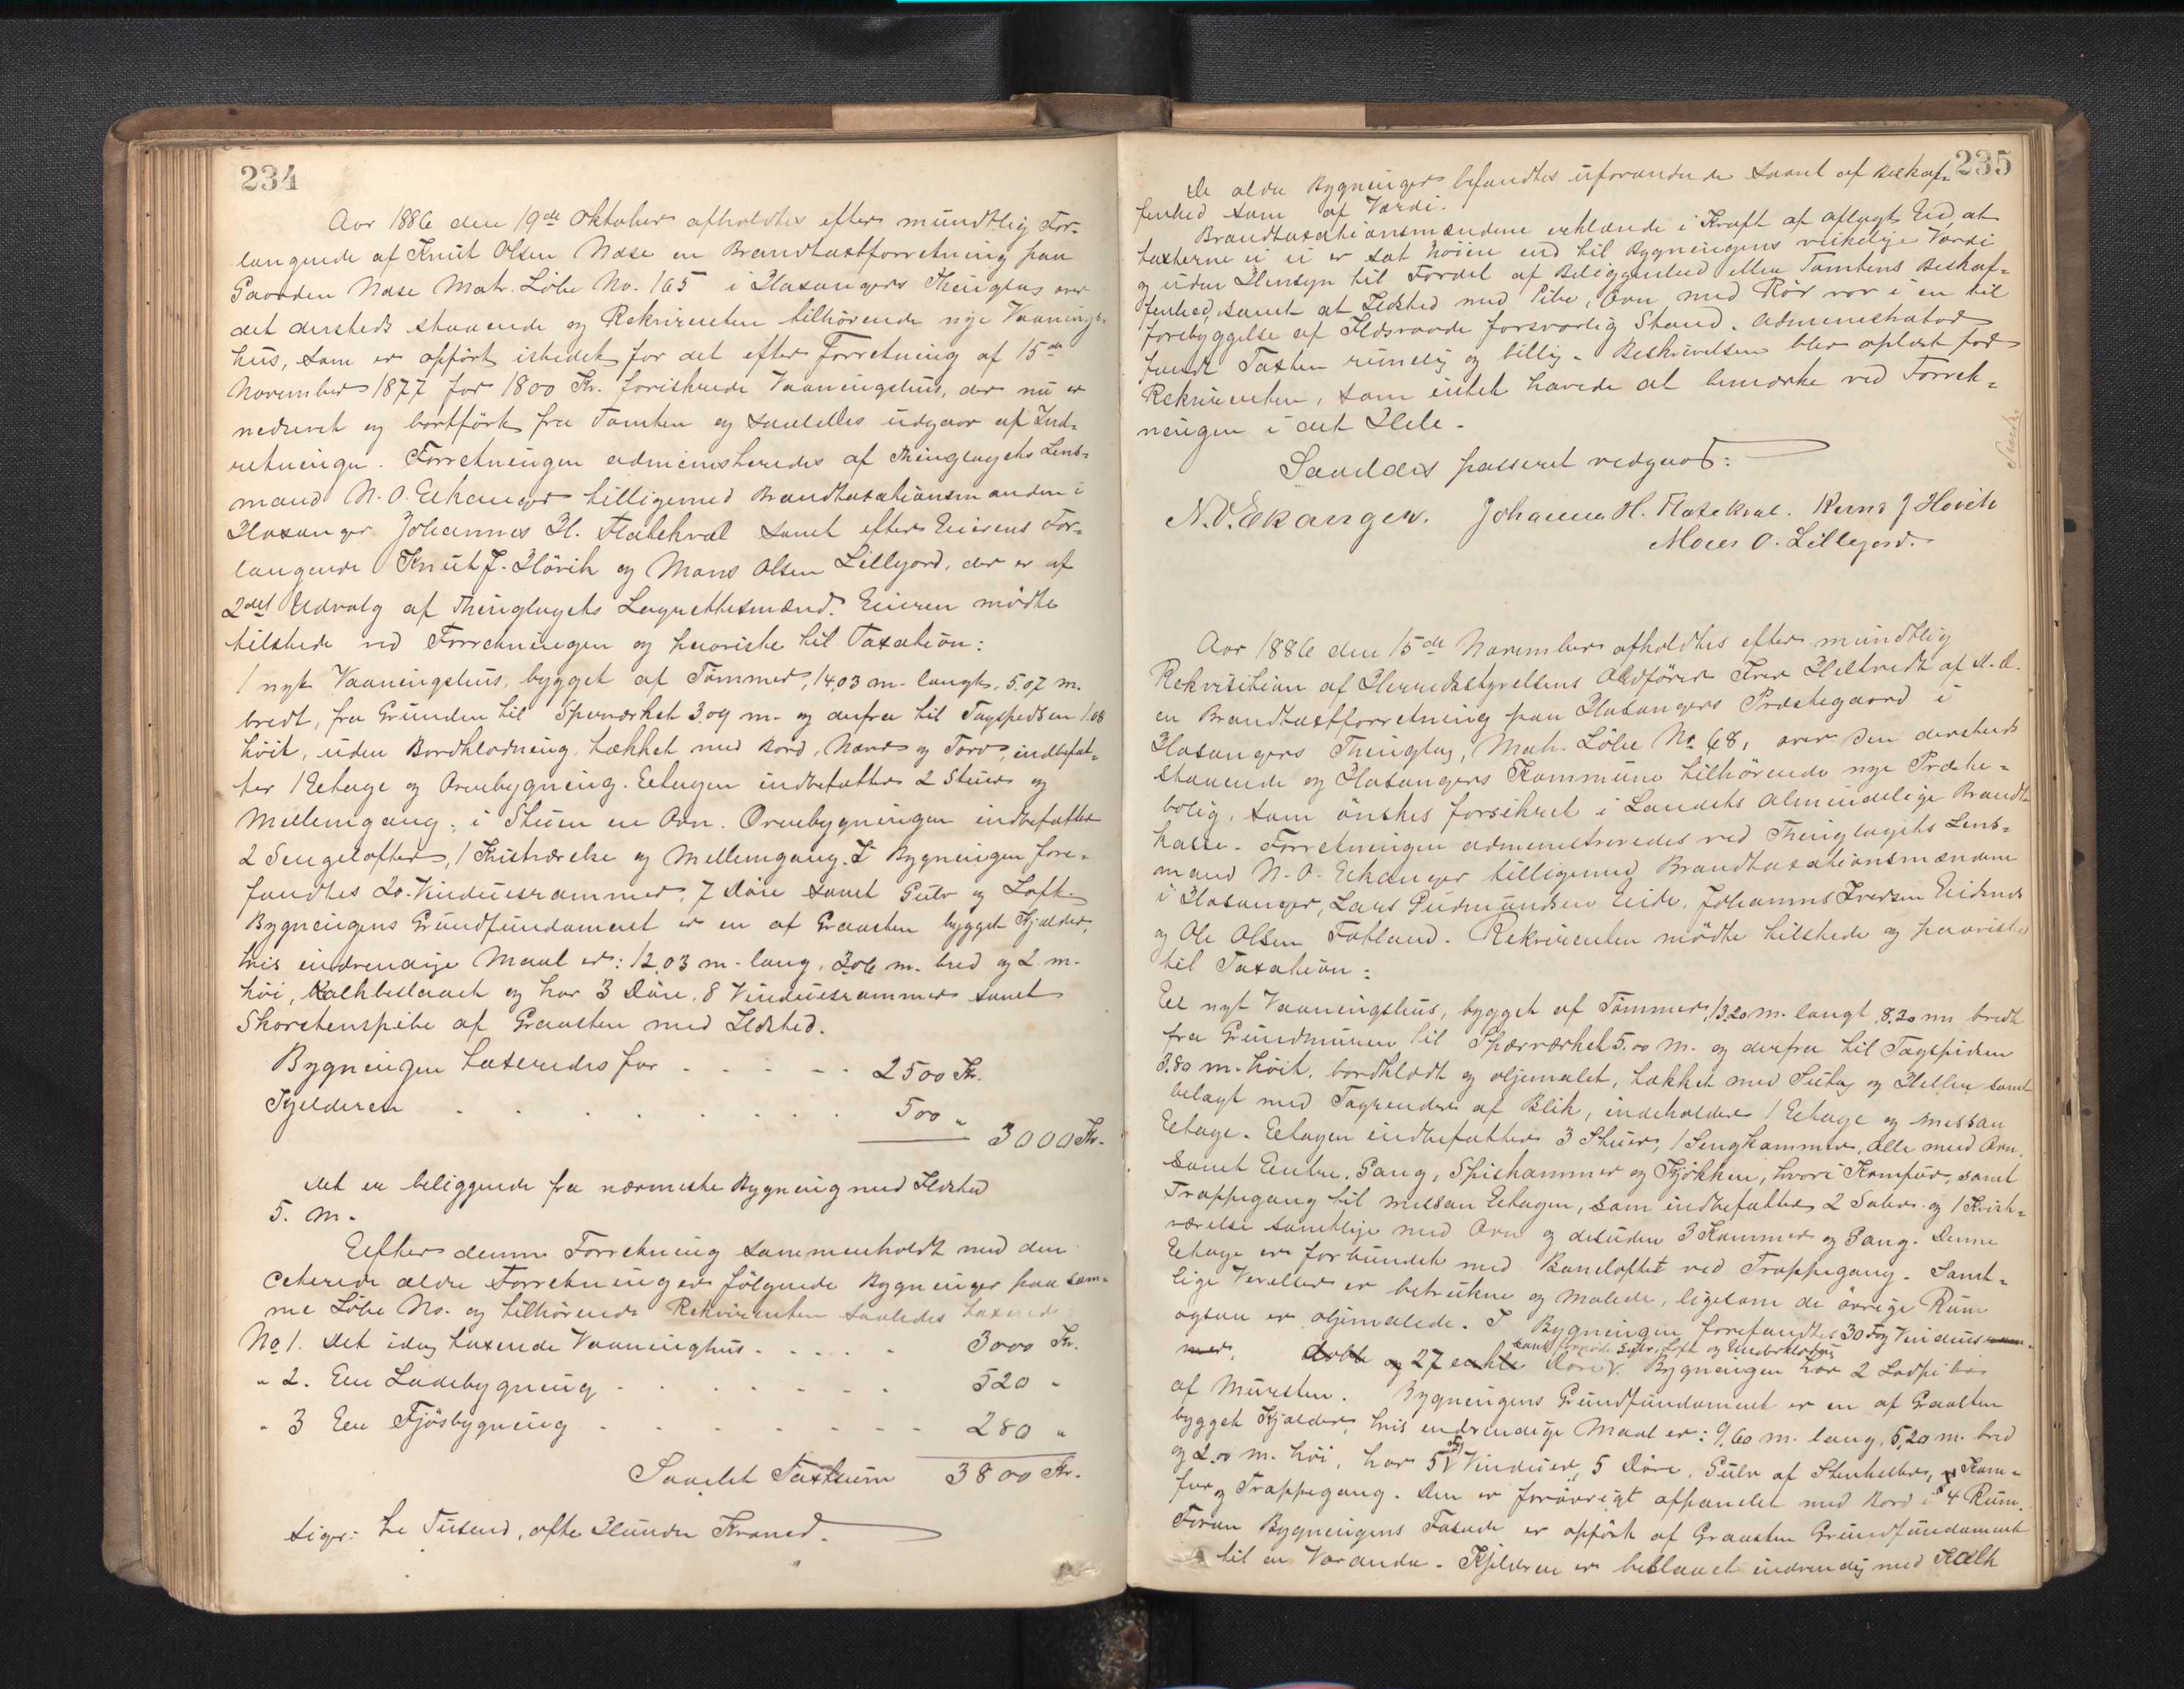 234
Aar 1886 den 19de Oktober afholdtes efter mundtlig For-
langende af Knut Olsen Mase en Brandtaxtforretning paa
Gaarden Mase Matr. Löbe No. 165 i Hosangers Thinglag over
det dersteds staaende og Rekvirenten tilhörende nye Vaanings-
hus, som er opfört istedet for det efter Forretning af 15de
November 1877 for 1800 Kr. forsikrede Vaaningshus, der nu er
nedrevet og bortfört fra Tomten og saaledes udgaar af Ind-
retningen. Forretningen administreredes af Thinglagets Lens-
mand N. O. Eekanger tilligemed Brandtaxationsmanden i
Hosanger Johannes H. Flatekval samt efter Eierens For-
langende Knut J. Hövik og Mons Olsen Lillejord, der er af
2det Udvalg af Thinglagets Lagrettesmænd. Eieren mödte
tilstede ved Forretningen og paaviste til Taxation:
1 nyt Vaaningshus, bygget af Tömmer, 14,03 m. langt, 5.07 m.
bredt, fra Grunden til Sperværket 3.09 m. og derfra til Tagspidsen 1.08
höit, uden Bordklædning, tækket med Bord, Næver og Torv, indbefat-
ter 1 Eetage og Overbygning. Eetagen indbefatter 2 Stuer og
Mellemgang, i Stuen en Ovn. Overbygningen indbefatter
2 Sengelofter, 1 Kvistværelse og Mellemgang. I Bygningen fore-
fandtes 20 Vinduesrammer, 7 Döre samt Gulv og Loft.
Bygningens Grundfundament er en af Graasten bygget Kjelder,
hvis indvendige Maal er: 12,03 m. lang, 3.06 m. bred og 2 m.
höi, Kalkbeslaaet og har 3 Döre, 8 Vinduesrammer samt
Skorstenspibe af Graasten med Ildsted.
Bygningen taxeredes for . . . . . 2500 Kr.
Kjelderen . . . . . . . . 500 "
3000 Kr.
Det er beliggende fra nærmeste Bygning med Ildsted
5. m.
Eefter denne Forretning sammenholdt med den
Citerede ældre Forretning er fölgende Bygninger paa sam-
me Löbe No. og tilhörende Rekvirenten saaledes taxerede
No 1. Det idag taxerede Vaaninghus . . . . . 3000 Kr.
" 2. Een Ladebygning . . . . . . 520 "
" 3 Een Fjösbygning . . . . . . . 280 "
Samlet Taxtsum 3800 Kr.
siger: Tre Tusend, otte Hundre Kroner.
235
De ældre Bygninger befandtes uforandrede saavel af Beskaf-
fenhed som af Værdi.
Brandtaxationsmændene erklærede i Kraft af aflagt Eed, at
taxterne ei er sat höiere end til Bygningens virkelige Værdi
og uden Hensyn til Fordel af Beliggenhed eller Tomtens Beskaf-
fenhed, samt at Ildsted med Pibe, Ovn med Rör var i en til
forebyggelse af Ildsvaade forsvarlig Stand. Administrator
fandt Taxten rimelig og billig. Beskrivelsen blev oplæst for
Rekvirenten, som intet havede at bemærke ved Forret-
ningen i det Hele.
Saaledes passeret vedgaar:
N. O. Ekanger. Johannes H. Flatekval. Knut J Hövik
Mons O. Lillejord.
Aar 1886 den 15de November afholdtes efter mundtlig
Rekvisition af Herredsstyrelsens Ordförer Iver Heltvedt af d. A.
en Brandtaxtforretning paa Hosangers Præstegaard i
Hosangers Thinglag, Matr. Löbe No 68, over den dersteds
staaende og Hosangers Kommune tilhörende nye Præste-
bolig, som önskes forsikret i Landets Almindelige Brandt-
kasse. Forretningen administreredes ved Thinglagets Lens-
mand N. O. Eekanger tilligemed Brandtaxationsmændene
i Hosanger, Lars Gudmundsen Eide, Johannes Iversen Eidsnes
og Ole Olsen Fotland. Rekvirenten mödte tilstede og paaviste
til Taxation:
Eet nyt Vaaningshus, bygget af Tömmer, 13,20 m. langt, 8,20 m bredt
fra Grundmuren til Spærværket 5.00 m. og derfra til Tagspidsen
3.80 m. höit, bordklædt og oljemalet, tækket med Sutag og Heller samt
belagt med Tagrender af Blik, indeholder 1 Eetage og messan
Eetage. Eetagen indbefatter 3 Stuer, 1 Sengkammer, alle med Ovn,
samt Entre, Gang, Spiskammer og Kjökken, hvori Komfur, samt
Trappegang til messan Eetagen, som indbefatter 2 Saler og 1 Kvist-
værelse samtlige med Ovn og desuden 3 Kammer og Gang. Denne
Eetage er forbundet med Baneloftet ved Trappegang. Samt-
lige Værelser er betrukne og malede, ligesom de övrige Rum
ogsaa er oljemalede. I Bygningen forefandtes 30 Fag Vinduesram-
mer, doble og 27 enkle Döre. Bygningen har 2 Lodpiber
samt fornöd. Gulv, Loft og Underklædning
af Mursten. Bygningens Grundfundament er en af Graasten
bygget Kjælder, hvis indvendige Maal er: 9,60 m. lang, 5,20 m. bred
og 2.00 m. höi, har 5 Fag Vinduer, 5 Döre, Gulv af Stenheller, Kom-
fur og Trappegang. Den er forövrigt afpanelet med Bord i 4 Rum.
Foran Bygningens Fasade er opfört af Graasten Grundfundament
til en Varanda. Kjelderen er beslaaet indvendig med Kalk